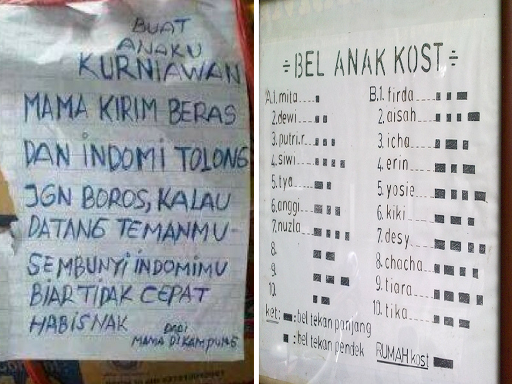 BUAT
ANAKU
KURNIAWAN
MAMA KIRIM BERAS
DAN INDOMI TOLONG
JGN BOROS, KALAU
DATANG TEMANMU
SEMBUNYI INDOMIMU
BIAR TIDAK CEPAT
HABIS NAK
DARI
MAMA DI KAMPUNG
÷BEL ANAK KOST÷
A.1. mita
2. dewi
3. putri.r
4. siwi
5. tya
6. anggi
7. nuzla
8.
9.
10.
B.1. firda
2. aisah
3. icha
4. erin
5. yosie
6. kiki
7. desy
8. chacha
9. tiara
10. tika
ket: : bel tekan panjang
: bel tekan pendek
RUMAH kost